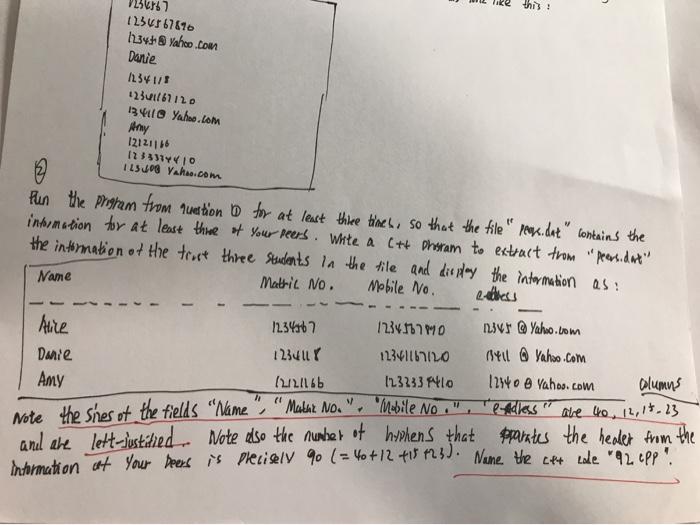 this :
1234567
1234567890
12345@ Yahoo.com
Danie
1234118
12341167120
13411@ Yahoo.com
Amy
12121166
1233334410
Yahoo.com
②
Run the program from question ① for at least three times, so that the file "peers.dat" contains the
information for at least three of your peers. Write a C++ program to extract from "peers.dat"
the information of the first three students in the file and display the information as :
Name Matric No. Mobile No. e-address
Alice 1234567 1234567890 12345 @ Yahoo.com
Danie 1234118 12341167120 13411 @ Yahoo.com
Amy 12121166 12340@ Yahoo.com
Note the sizes of the fields "Name", "Matric No.", "Mobile No.", "e-address" are 40, 12, 15, 23 columns
and are left-justified. Note also the number of hyphens that separates the header from the
information of your peers is precisely 90 (= 40+12 +15 +23). Name the c++ code "q2.cpp".